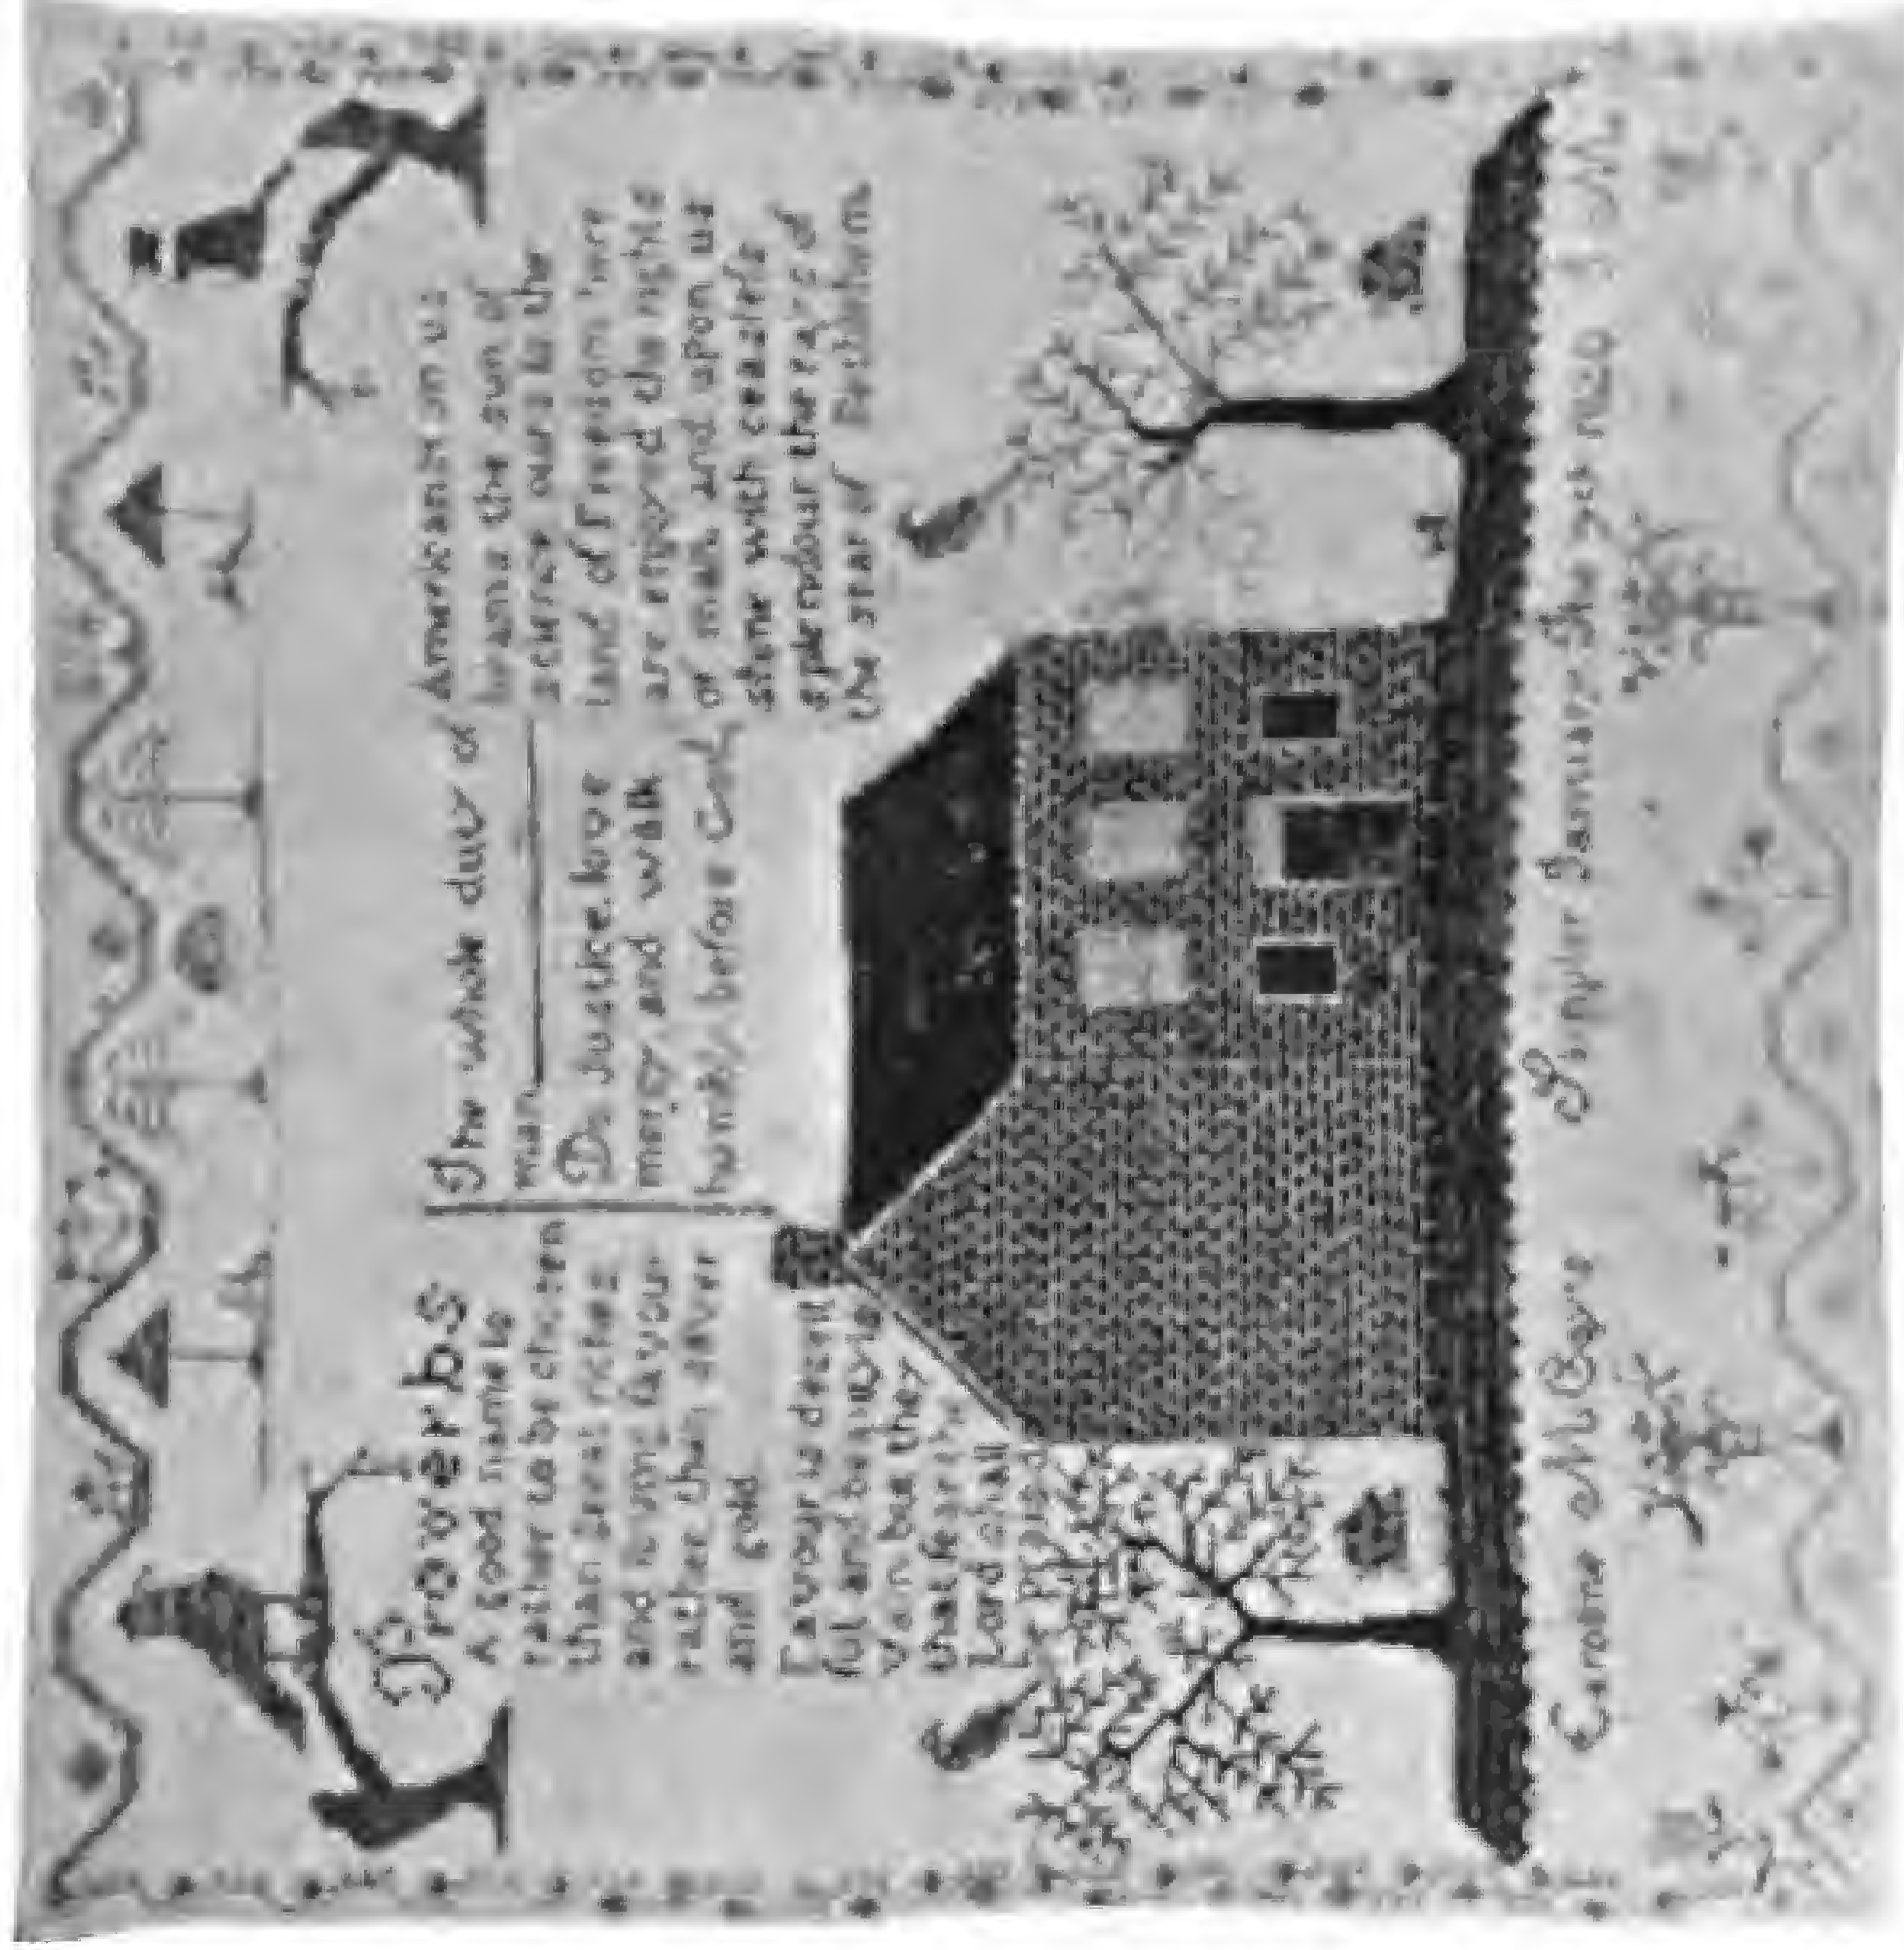 Proverbs
A Good name is
rather to be chosen
than great riches
and loving favour
rather than silver
and gold
Favour is deceit
ful and beauty is
vain but they
that fear the
Lord shall
be praised
The whole duty of
man
Do Justice love
mercy and walk
humbly before God
Americans on us
beams the sun of
science ours is the
land of Freedom
are enjoyed the rights
of man and upon us
shine with ceasless
splendour the rays of
the star of
Sampler January the 1820